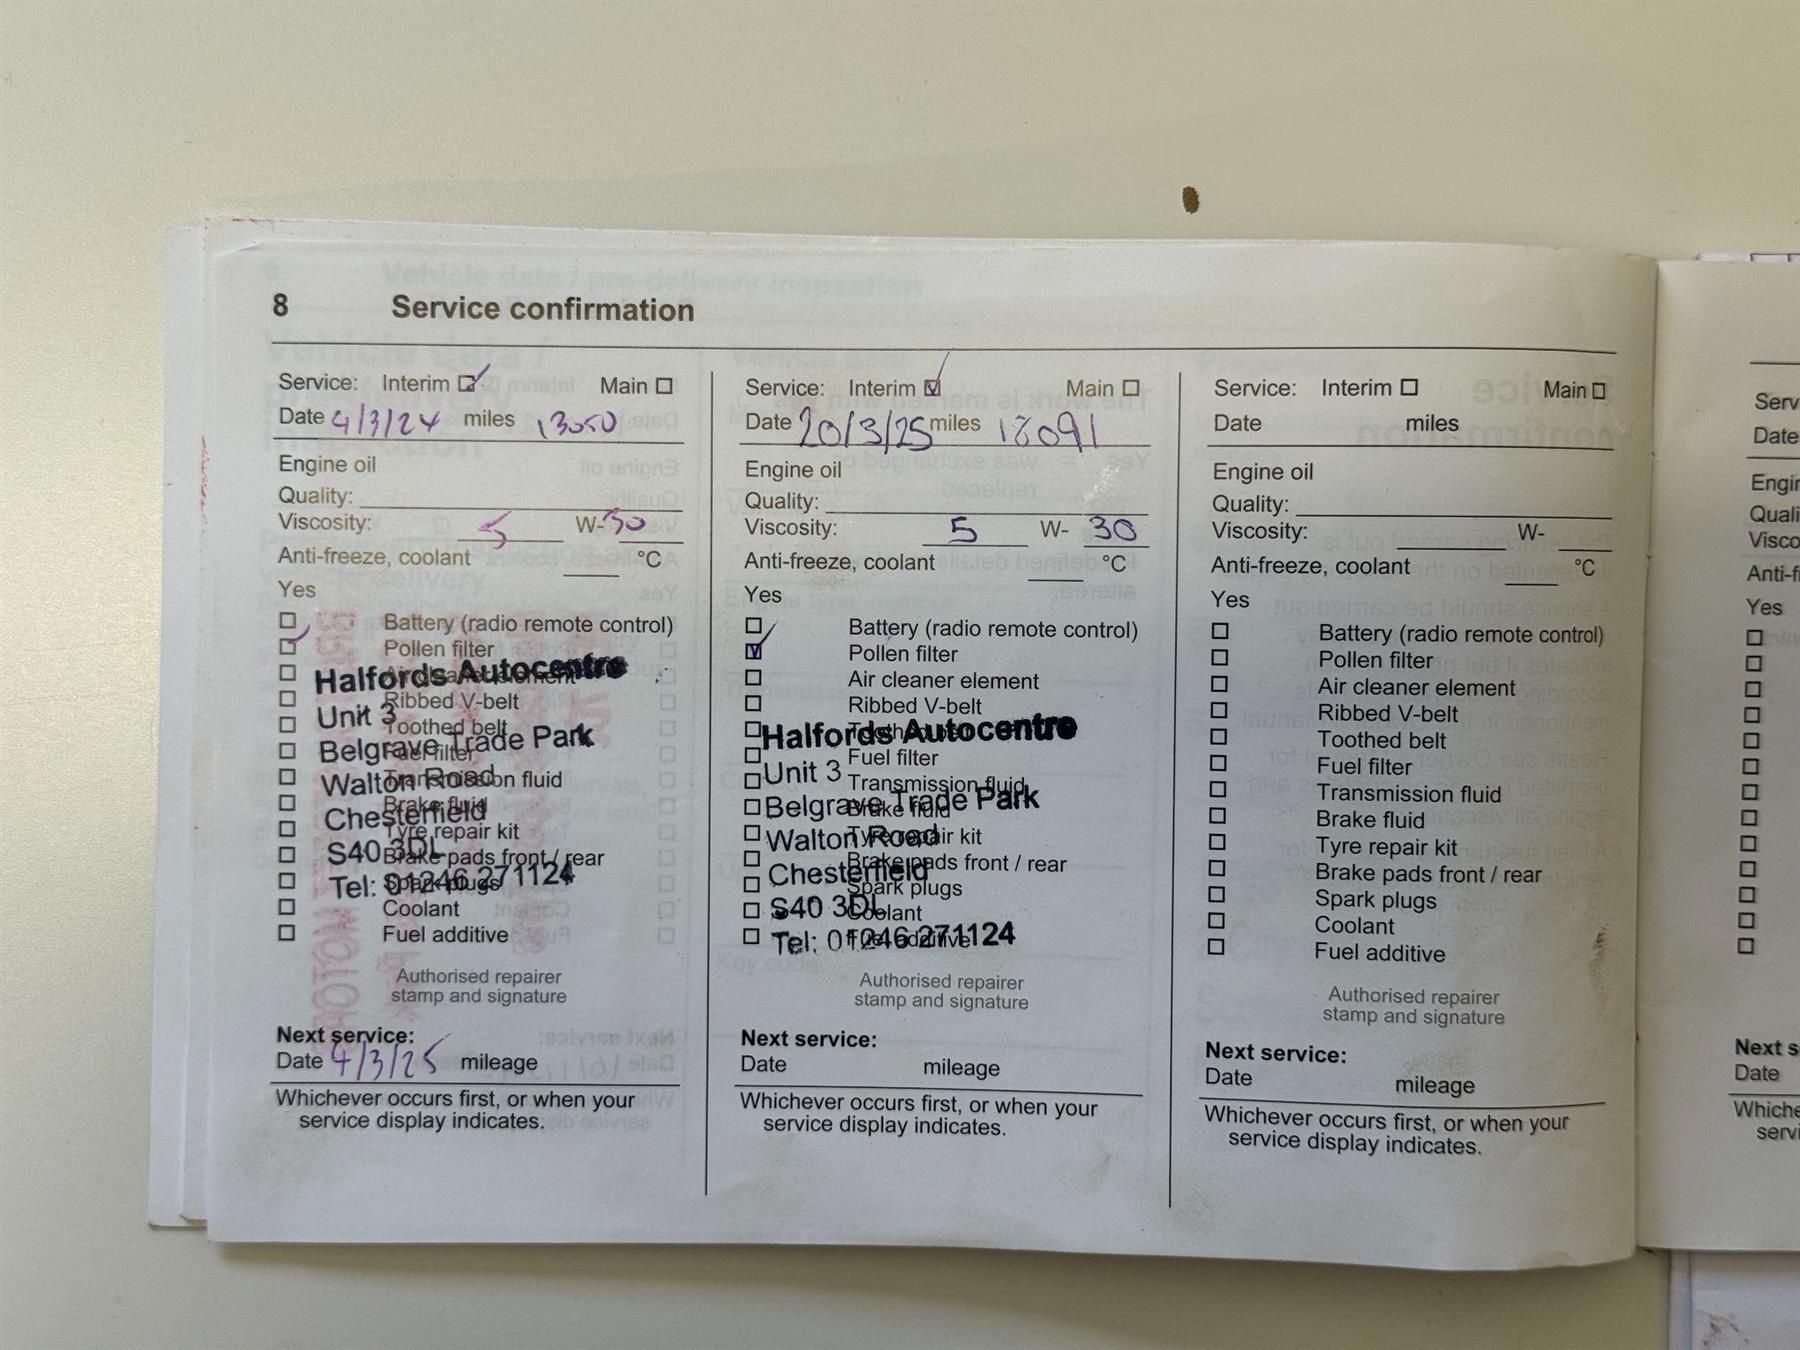 8 Service confirmation
Service: Interim Main
Date 4/3/24 miles 13050
Engine oil
Quality:
Viscosity: 5 W-30
Anti-freeze, coolant °C
Yes
Battery (radio remote control)
Pollen filter
Air cleaner element
Ribbed V-belt
Toothed belt
Fuel filter
Transmission fluid
Brake fluid
Tyre repair kit
Brake pads front / rear
Spark plugs
Coolant
Fuel additive
Halfords Autocentre
Unit 3
Belgrave Trade Park
Walton Road
Chesterfield
S40 3DL
Tel: 01246 271124
Authorised repairer
stamp and signature
Next service:
Date 4/3/25 mileage
Whichever occurs first, or when your
service display indicates.
Service: Interim Main
Date 20/3/25 miles 18091
Engine oil
Quality:
Viscosity: 5 W- 30
Anti-freeze, coolant °C
Yes
Battery (radio remote control)
Pollen filter
Air cleaner element
Ribbed V-belt
Toothed belt
Fuel filter
Transmission fluid
Brake fluid
Tyre repair kit
Brake pads front / rear
Spark plugs
Coolant
Fuel additive
Halfords Autocentre
Unit 3
Belgrave Trade Park
Walton Road
Chesterfield
S40 3DL
Tel: 01246 271124
Authorised repairer
stamp and signature
Next service:
Date mileage
Whichever occurs first, or when your
service display indicates.
Service: Interim Main
Date miles
Engine oil
Quality:
Viscosity: W-
Anti-freeze, coolant °C
Yes
Battery (radio remote control)
Pollen filter
Air cleaner element
Ribbed V-belt
Toothed belt
Fuel filter
Transmission fluid
Brake fluid
Tyre repair kit
Brake pads front / rear
Spark plugs
Coolant
Fuel additive
Authorised repairer
stamp and signature
Next service:
Date mileage
Whichever occurs first, or when your
service display indicates.
Date
Yes
Date